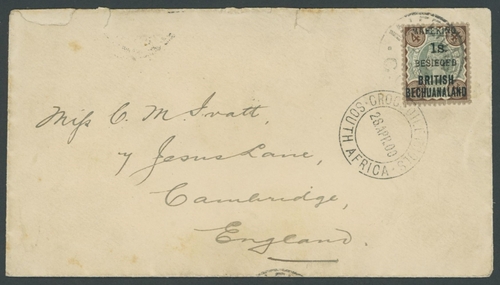 MAFEKING,
1s.
BESIEGED
BRITISH
BECHUANALAND
CROCODILE
SOUTH AFRICA
28 APR 00
Miss C. M. Pratt,
7 Jesus Lane,
Cambridge,
England.